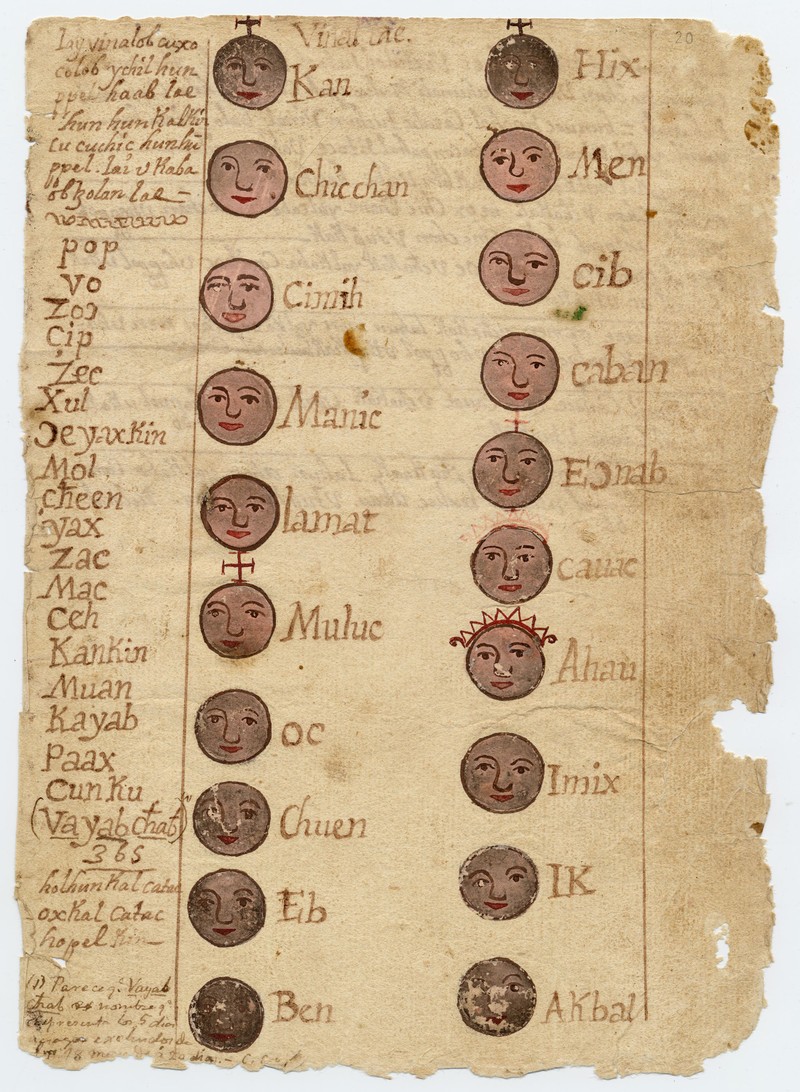 20
Lay vinalob cuxo
colob ychil hun
ppel haab lae
hun hun Kal Kin
cu cuchic hunhũ
ppel. lai v Kaba
ob lae
pop
vo
Zoɔ
Cip
Zec
Xul
Ɔeyaxkin
Mol
cħeen
yax
Zac
Mac
Ceh
Kankin
Muan
Kayab
Paax
Cunku
(Vayab cħab)
365
holhunkal catac
oxkal catac
hopel Kin
(1) Parece qᵉ Vayab
cħab es nombre qᵉ
los 5 dias
Kan
Chicchan
Cimih
Manic
lamat
Muluc
oc
Chuen
Eb
Ben
Hix
Men
cib
caban
Eɔnab
cauac
Ahau
Imix
IK
AKbal